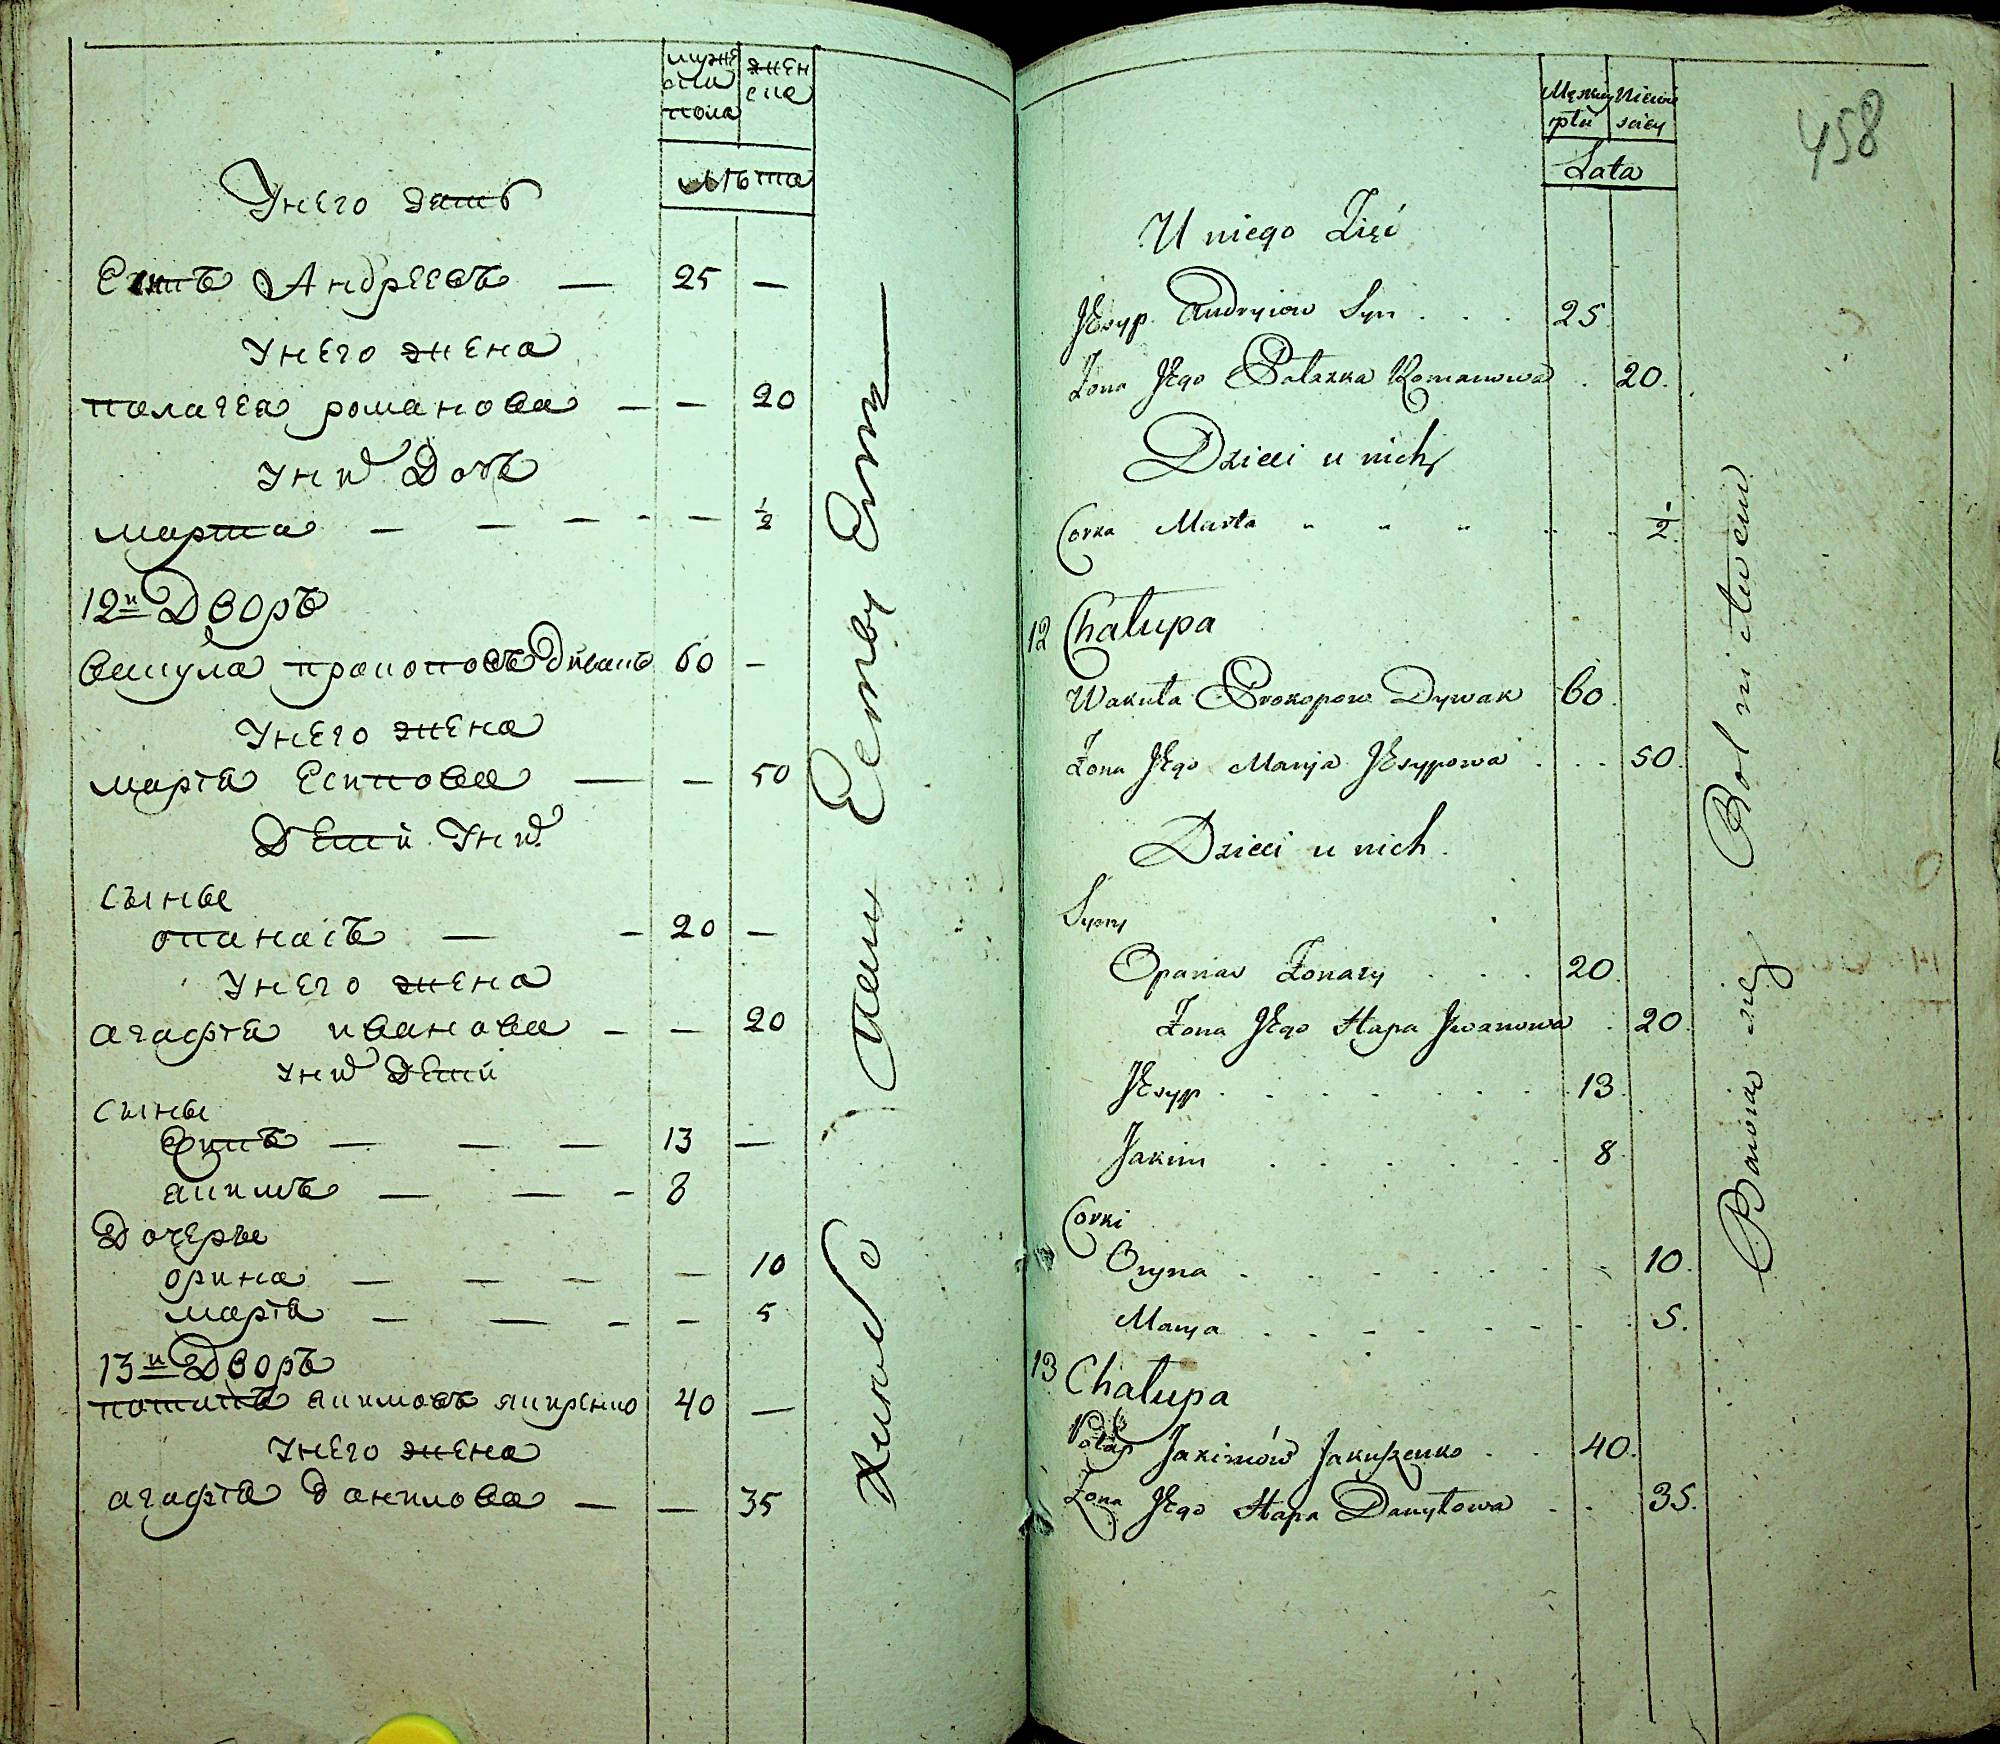 мужеска пола
женска
лѣта
У него зять
Есипъ Андреевъ — 25 —
У него жена
Палагея Романова — — 20
У них дочь
Марта — — — - — ½
12й Дворъ
Вакула Прокоповъ Дивакъ 60 —
У него жена
Марія Есипова — — 50
Дети у них
Сыны
Опанасъ — - 20 —
У него жена
Агафія Иванова — — 20
У них дети
Сыны
Есипъ — — — 13 —
Акимъ — — - 8
Дочеры
Орина — — — — 10
Марія — — - — 5
13й Дворъ
Потапъ Акимовъ Якиренко 40 —
У него жена
Агафія Данилова — — 35
458
Męzkiey płci
Niewieściey
Lata
U niego Zięć
JEsyp Andryiow Syn . . . 25.
Żona JEgo Połazka Romanowa . 20.
Dzieci u nich
Corka Marta " " " . . ½.
12 Chałupa
Wakuła Prokopow Dywak 60.
Żona JEgo Marya JEsypowa . . . 50.
Dzieci u nich.
Syny
Opanas Żonaty . . . 20.
Żona JEgo Hapa Jwanowa . 20.
JEsyp . . . . . . . 13.
Jakim . . . . . . 8
Corki
Oryna . . . . . . . . 10.
Marya . . . . . . . . 5.
13 Chałupa
Potap Jakimów Jakuszenko . . 40.
Żona JEgo Hapa Danyłowa . . 35.